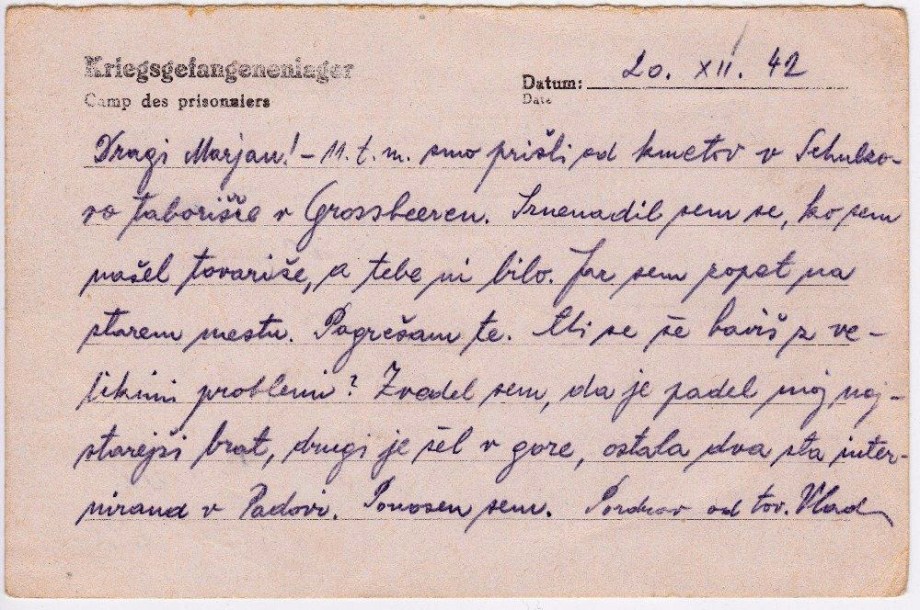 Kriegsgefangenenlager
Camp des prisonniers
Datum: 20. XII. 42
Date
Dragi Marjan! - 11. t. m. smo prišli od kmetov v Schulzo-
vo taborišče v Grossbeeren. Iznenadil sem se, ko sem
našel tovariše, a tebe ni bilo. Jaz sem zopet na
starem mestu. Pogrešam te. Ali se še baviš z ve-
likimi problemi? Zvedel sem, da je padel moj naj-
starejši brat, drugi je šel v gore, ostala dva sta inter-
nirana v Padovi. Ponosen sem. Pozdrav od tov. Vlad